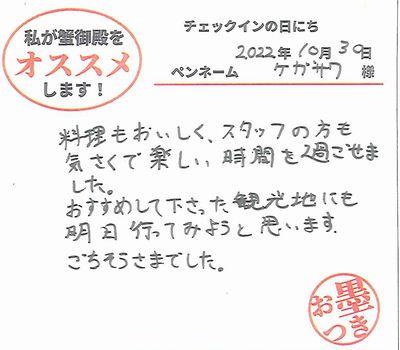 私が蟹御殿を
オススメ
します!
チェックインの日にち
2022年10月30日
ペンネーム ケガサワ 様
料理もおいしく、スタッフの方も
気さくで楽しい時間を過ごせま
した。
おすすめして下さった観光地にも
明日行ってみようと思います。
ごちそうさまでした。
お墨
つき